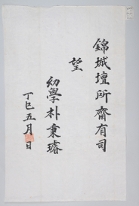 錦城壇所齋有司
望
幼學朴秉璿
丁巳五月 日